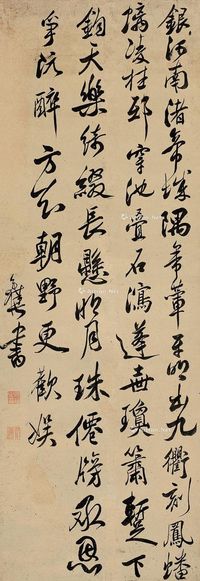 銀河南渚帝城隅帝輦平明出九衢刻鳳蟠
螭凌桂邸穿池疊石瀉蓬壺瓊簫暫下
鈞天樂綺綴長懸明月珠僊牓承恩
爭既醉方知朝野更歡娛
書